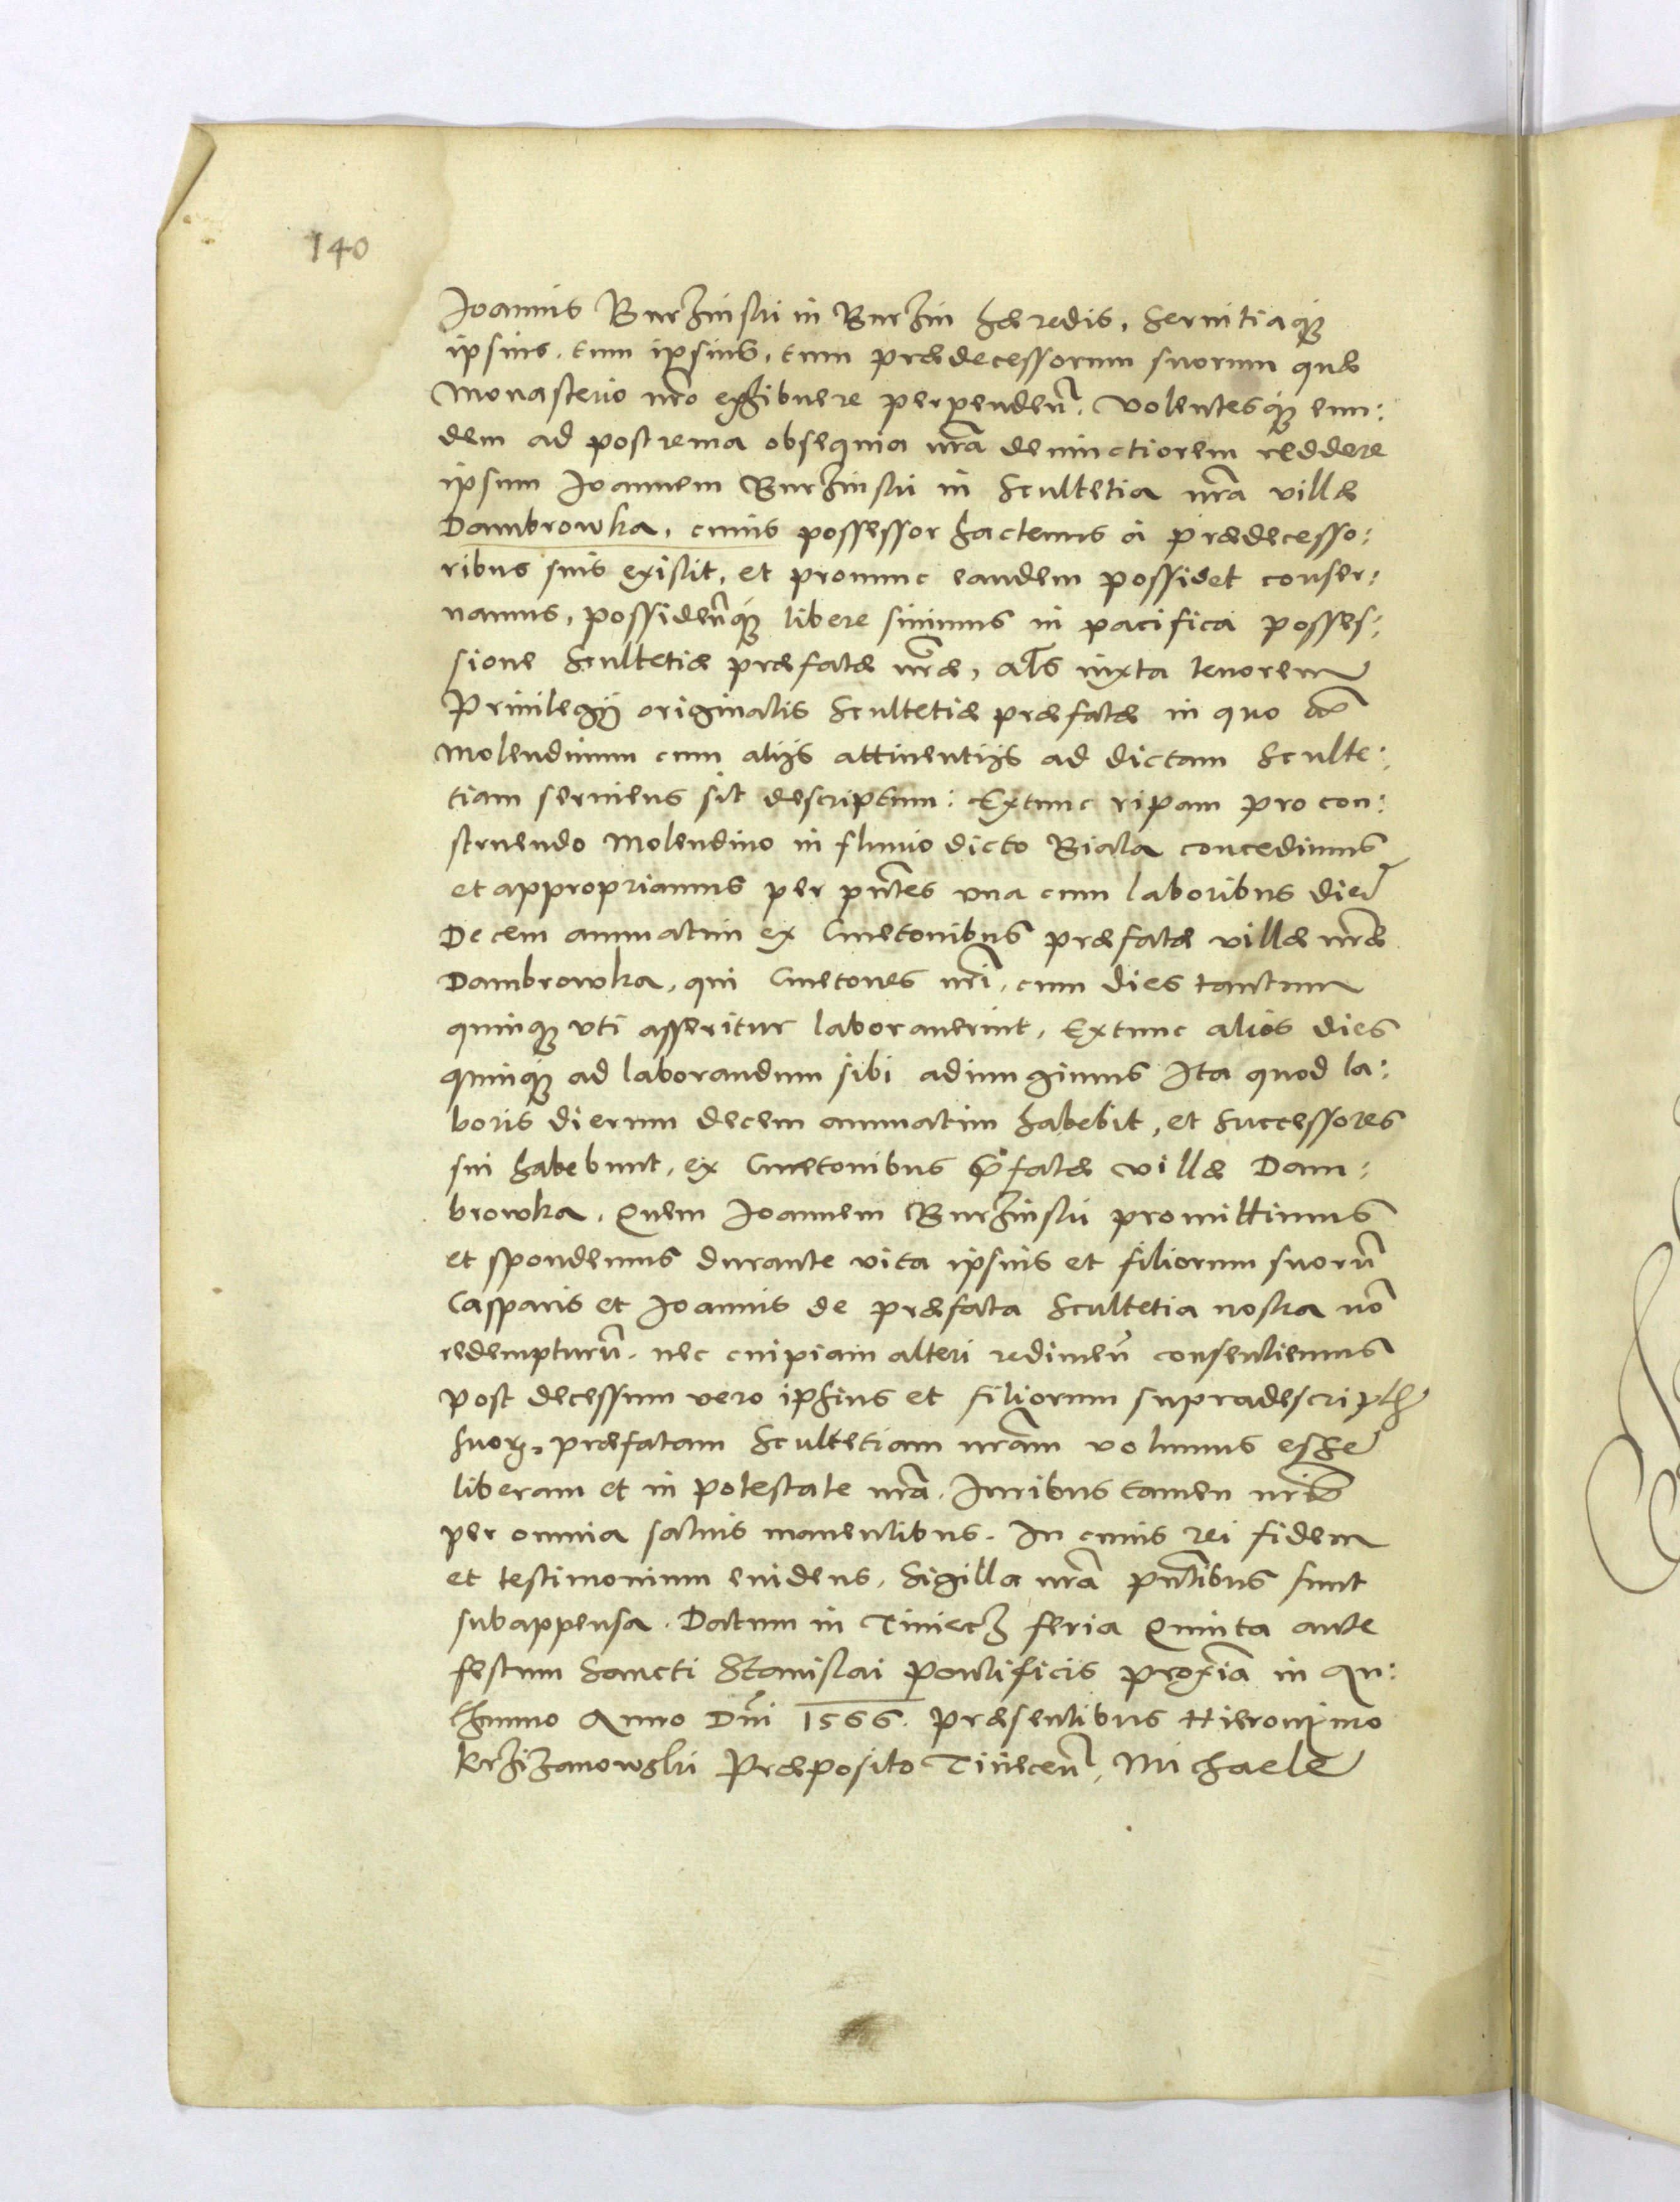 140
Joannis Burzinski in Burzin hæredis, servitiaq́
ipsius, tum ipsius, tum prædecessorum suorum quæ
Monasterio nr̃o exhibuere perpendeñ. Volentesq́ eun:
dem ad postrema obsequia nr̃a devinctiorem reddere
ipsum Joannem Burzinski in Scultetia nr̃a villæ
Dambrowka, cuius possessor hactenus á prædecesso:
ribus suis existit, et pronunc eandem possidet conser:
vamus, possidereq́ libere sinimus in pacifica posses:
sione Scultetiæ præfatæ nr̃æ, al̃s iuxta tenorem
Privilegij originalis Scultetiæ præfatæ in quo
Molendinum cum alijs attinentijs ad dictam Sculte:
tiam serviens sit descriptum: Extunc ripam pro con:
struendo Molendino in fluvio dicto Biala concedimus
et appropriamus per pñtes una cum laboribus dieꝝ
Decem annuatim ex Cmetonibus præfatæ villæ nr̃æ
Dambrowka, qui Cmetones nr̃i, cum dies tantum
quinq́ uti asseritur laboraverint, Extunc alios dies
quinq́ ad laborandum sibi adiungimus Ita quod la:
boris dierum decem annuatim habebit, et Successores
sui habebunt, ex Cmetonibus p̃fatæ villæ Dam:
browka. Quem Joannem Burzinski promittimus
et spondemus durante vita ipsius et filiorum suorũ
Casparis et Joannis de præfata Scultetia nostra nõ
redempturũ. nec cuipiam alteri redimeñ consentiemus
post decessum vero ipsius et filiorum supradescriptꝝ
suoꝝ, præfatam Scultetiam nr̃am volumus esse
liberam et in potestate nr̃a. Iuribus tamen nr̃is
per omnia salvis manentibus. In cuius rei fidem
et testimonium evidens, Sigilla nr̃a pñtibus sunt
subappensa. Datum in Tiniecz feria Quinta ante
festum Sancti Stanislai Pontificis proxĩa in Au:
thumno Anno Dñi 1566. Præsentibus Hieronimo
Krzizanowski Præposito Tiniceñ, Michaele